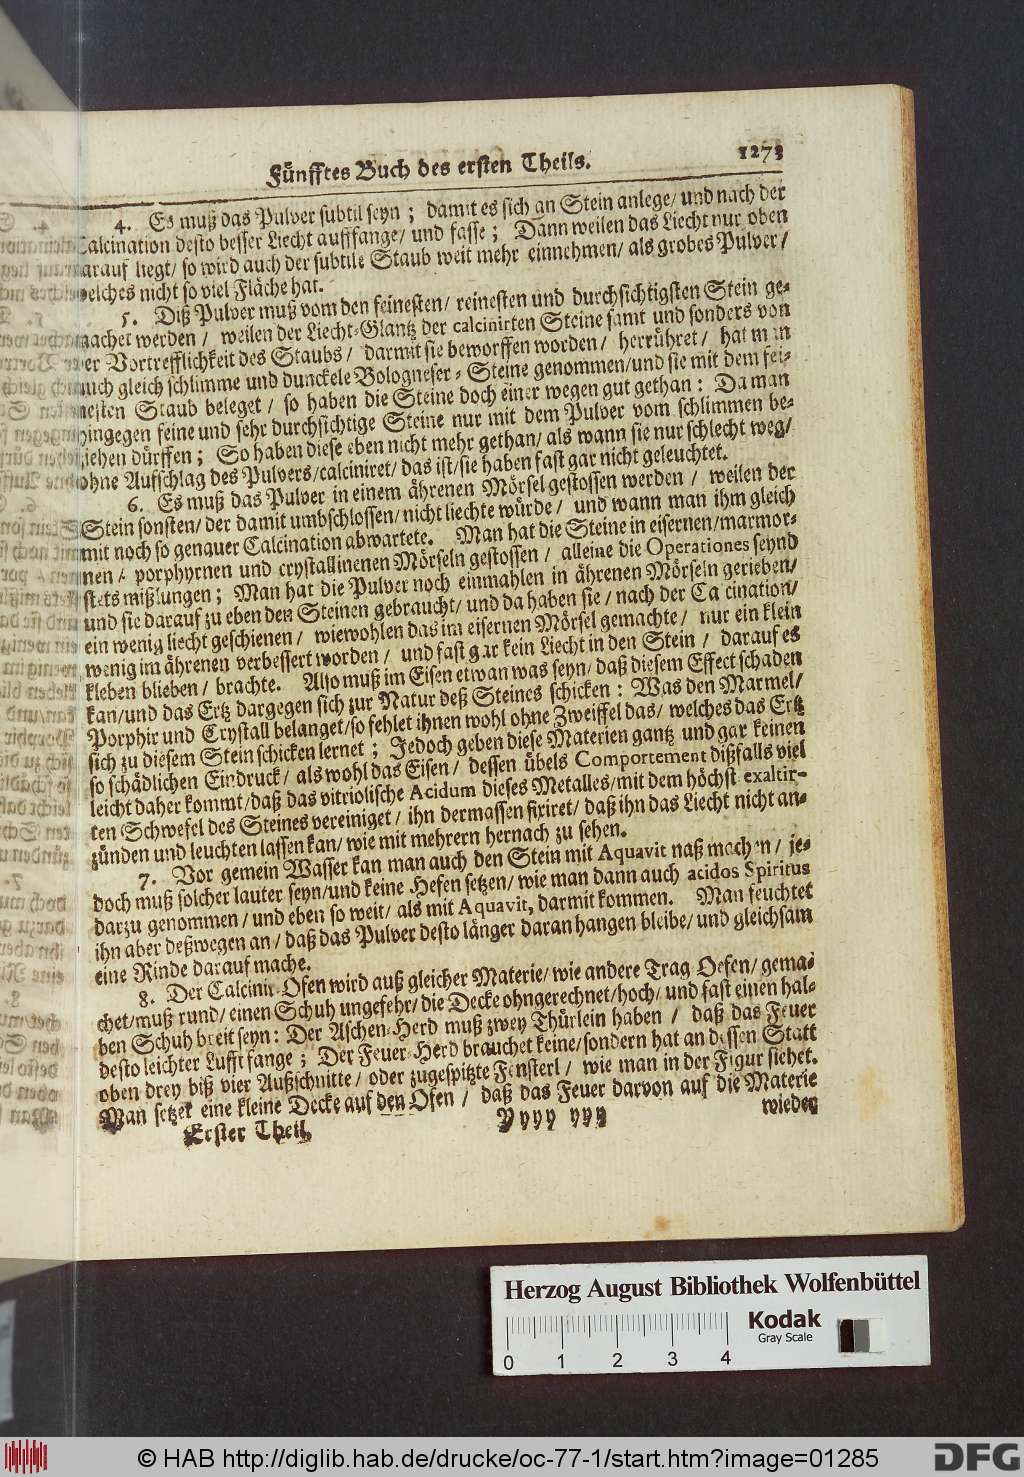 Fünfftes Buch des ersten Theils. 1273
4. Es muß das Pulver subtil seyn; damit es sich an Stein anlege/ und nach der
Calcination desto besser Liecht aufffange/ und fasse; Dann weilen das Liecht nur oben
darauf liegt/ so wird auch der subtile Staub weit mehr einnehmen/ als grobes Pulver/
welches nicht so viel Fläche hat.
5. Diß Pulver muß vom den feinesten/ reinesten und durchsichtigsten Stein ge-
machet werden/ weilen der Liecht-Glantz der calcinirten Steine samt und sonders von
der Vortrefflichkeit des Staubs/ darmit sie beworffen worden/ herrühret/ hat man
auch gleich schlimme und dunckele Bologneser-Steine genommen/und sie mit dem fei-
nesten Staub beleget/ so haben die Steine doch einer wegen gut gethan: Da man
hingegen feine und sehr durchsichtige Steine nur mit dem Pulver vom schlimmen be-
ziehen dürffen; So haben diese eben nicht mehr gethan/ als wann sie nur schlecht weg/
ohne Aufschlag des Pulvers/calciniret/ das ist/sie haben fast gar nicht geleuchtet.
6. Es muß das Pulver in einem ährenen Mörsel gestossen werden/ weilen der
Stein sonsten/ der damit umbschlossen/ nicht liechte würde/ und wann man ihm gleich
mit noch so genauer Calcination abwartete. Man hat die Steine in eisernen/marmor-
nen/ porphyrnen und crystallinenen Mörseln gestossen/ alleine die Operationes seynd
stets mißlungen; Man hat die Pulver noch einmahlen in ährenen Mörseln gerieben/
und sie darauf zu eben den Steinen gebraucht/ und da haben sie/ nach der Calcination/
ein wenig liecht geschienen/ wiewohlen das im eisernen Mörsel gemachte/ nur ein klein
wenig im ährenen verbessert worden/ und fast gar kein Liecht in den Stein/ darauf es
kleben blieben/ brachte. Also muß im Eisen etwan was seyn/ daß diesem Effect schaden
kan/und das Ertz dargegen sich zur Natur deß Steines schicken: Was den Marmel/
Porphir und Crystall belanget/so fehlet ihnen wohl ohne Zweiffel das/ welches das Ertz
sich zu diesem Stein schicken lernet; Jedoch geben diese Materien gantz und gar keinen
so schädlichen Eindruck/ als wohl das Eisen/ dessen übels Comportement dißfalls viel
leicht daher kommt/daß das vitriolische Acidum dieses Metalles/mit dem höchst exaltir-
ten Schwefel des Steines vereiniget/ ihn dermassen fixiret/ daß ihn das Liecht nicht an-
zünden und leuchten lassen kan/ wie mit mehrern hernach zu sehen.
7. Vor gemein Wasser kan man auch den Stein mit Aquavit naß machen/ je-
doch muß solcher lauter seyn/und keine Hefen setzen/ wie man dann auch acidos Spiritus
darzu genommen/ und eben so weit/ als mit Aquavit, darmit kommen. Man feuchtet
ihn aber deßwegen an/ daß das Pulver desto länger daran hangen bleibe/ und gleichsam
eine Rinde darauf mache.
8. Der Calcinir-Ofen wird auß gleicher Materie/ wie andere Trag Oefen/ gema-
chet/muß rund/ einen Schuh ungefehr/ die Decke ohngerechnet/hoch/ und fast einen hal-
ben Schuh breit seyn: Der Aschen-Herd muß zwey Thürlein haben/ daß das Feuer
desto leichter Lufft fange; Der Feuer-Herd brauchet keine/sondern hat an dessen Statt
oben drey biß vier Außschnitte/ oder zugespitzte Fensterl/ wie man in der Figur siehet.
Man setzet eine kleine Decke auf den Ofen/ daß das Feuer darvon auf die Materie
Erster Theil. Yyyy yyy wieder
Herzog August Bibliothek Wolfenbüttel
Kodak
Gray Scale
0 1 2 3 4
© HAB http://diglib.hab.de/drucke/oc-77-1/start.htm?image=01285
DFG